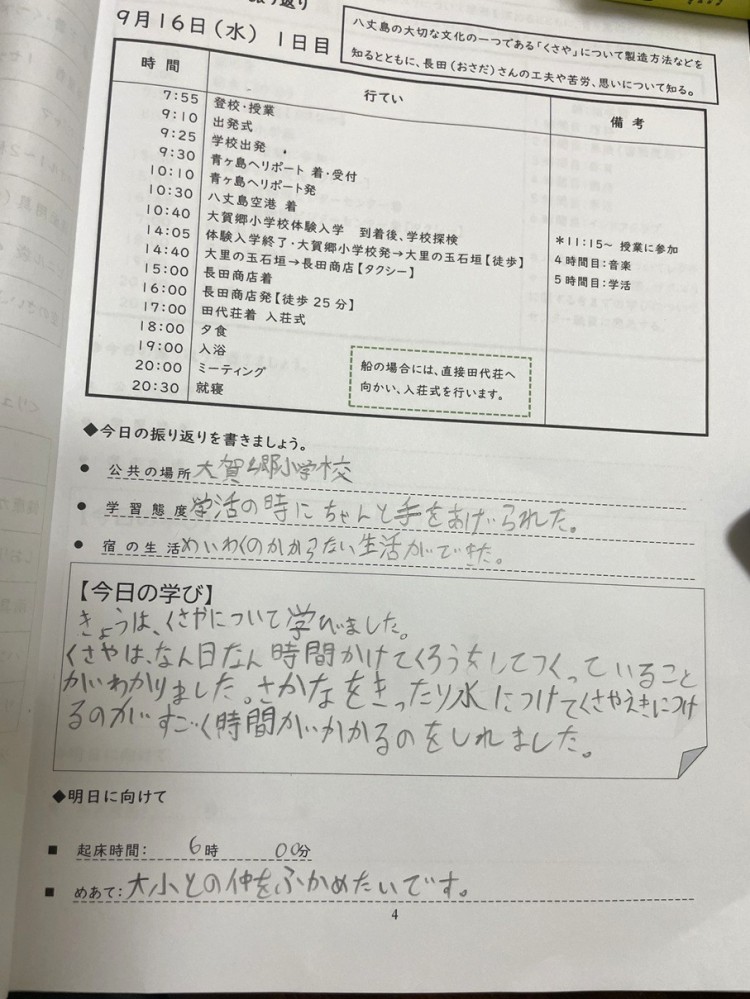 振り返り
9月16日(水) 1日目
八丈島の大切な文化の一つである「くさや」について製造方法などを
知るとともに、長田(おさだ)さんの工夫や苦労、思いについて知る。
時間 行てい 備考
7:55 登校・授業
9:10 出発式
9:25 学校出発
9:30 青ヶ島ヘリポート 着・受付
10:10 青ヶ島ヘリポート発
10:30 八丈島空港 着
10:40 大賀郷小学校体験入学 到着後、学校探検
14:05 体験入学終了・大賀郷小学校発→大里の玉石垣【徒歩】
14:40 大里の玉石垣→長田商店【タクシー】
15:00 長田商店着
16:00 長田商店発【徒歩25分】
17:00 田代荘着 入荘式
18:00 夕食
19:00 入浴
20:00 ミーティング
20:30 就寝
*11:15~ 授業に参加
4時間目:音楽
5時間目:学活
船の場合には、直接田代荘へ
向かい、入荘式を行います。
◆今日の振り返りを書きましょう。
● 公共の場所 大賀郷小学校
● 学習態度 学活の時にちゃんと手をあげられた。
● 宿の生活 めいわくのかからない生活ができた。
【今日の学び】
きょうは、くさやについて学びました。
くさやは、なん日なん時間かけてくろうをしてつくっていること
がわかりました。さかなをきったり水につけてくさやえきにつけ
るのがすごく時間がかかるのをしれました。
◆明日に向けて
■ 起床時間: 6時 00分
■ めあて: 大小との仲をふかめたいです。
4